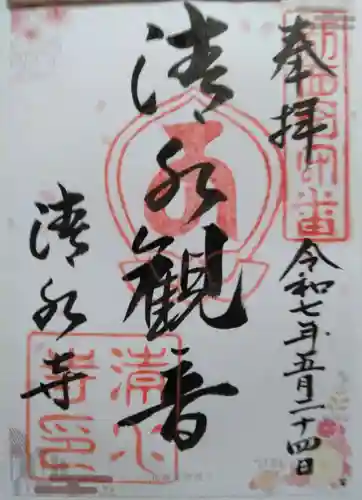 奉拝
令和七年五月二十四日
清水観音
清水寺